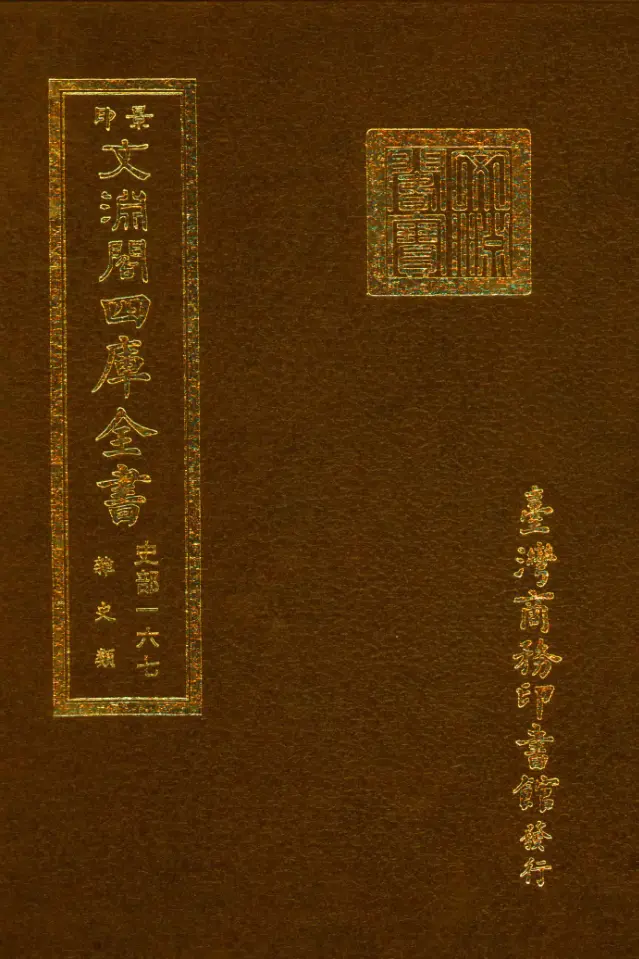 景印
文淵閣四庫全書
史部一六七
雜史類
文淵
閣寶
臺灣商務印書館發行